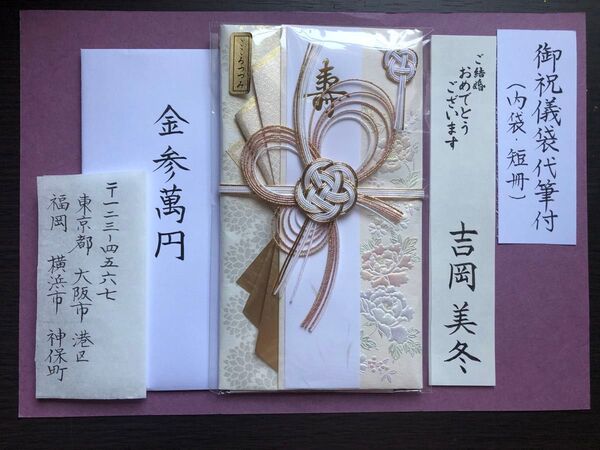 御祝儀袋代筆付
（内袋・短冊）
ご結婚
おめでとう
ございます
吉岡美冬
寿
こころつつみ
金参萬円
〒一二三-四五六七
東京都 大阪市 港区
福岡 横浜市 神保町